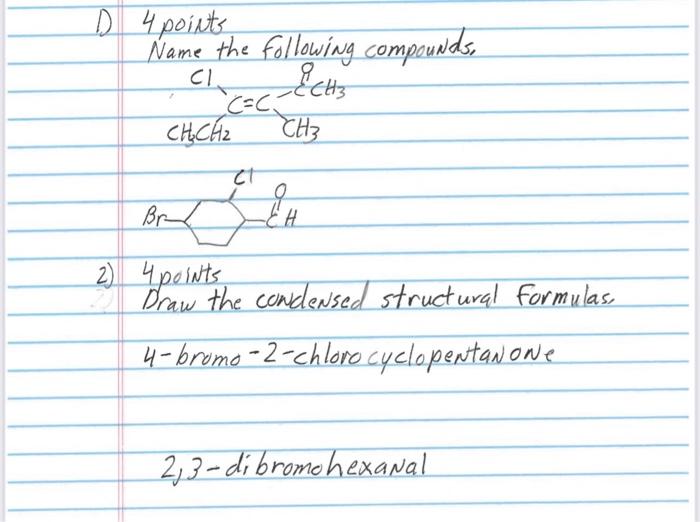 1) 4 points
Name the following compounds.
Cl O
C=C CCH3
CH3CH2 CH3
Cl O
Br CH
2) 4 points
Draw the condensed structural formulas.
4-bromo-2-chlorocyclopentanone
2,3-dibromohexanal